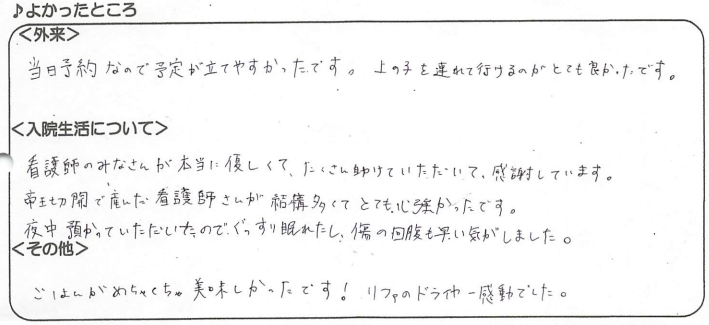 ♪よかったところ
<外来>
当日予約なので予定が立てやすかったです。 上の子を連れて行けるのがとても良かったです。
<入院生活について>
看護師のみなさんが本当に優しくて、たくさん助けていただいて、感謝しています。
帝王切開で産んだ看護師さんが結構多くてとても心強かったです。
夜中預かっていただいたのでぐっすり眠れたし、傷の回腹も早い気がしました。
<その他>
ごはんがめちゃくちゃ美味しかったです! リファのドライヤー感動でした。